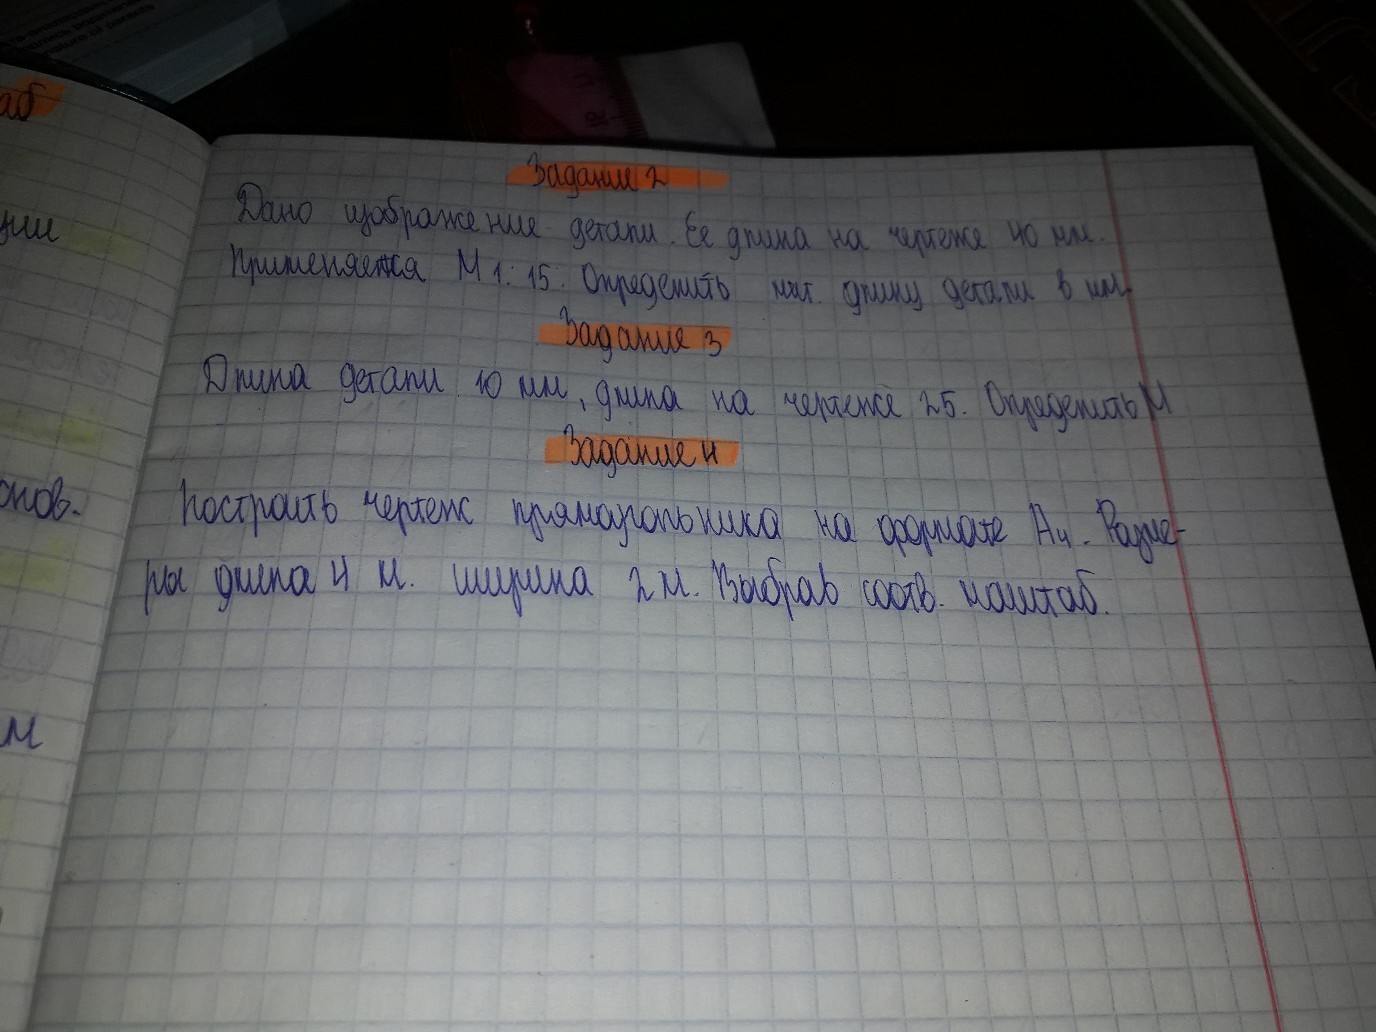 аб
Задание 2
ции
Дано изображение детали. Ее длина на чертеже 40 мм.
Применяется М 1:15. Определить нат. длину детали в мм.
Задание 3
Длина детали 10 мм, длина на чертеже 25. Определить М
Задание 4
онов.
Построить чертеж прямоугольника на формате А4. Разме-
ры длина 4 м. ширина 2 м. Выбрав соотв. масштаб.
м